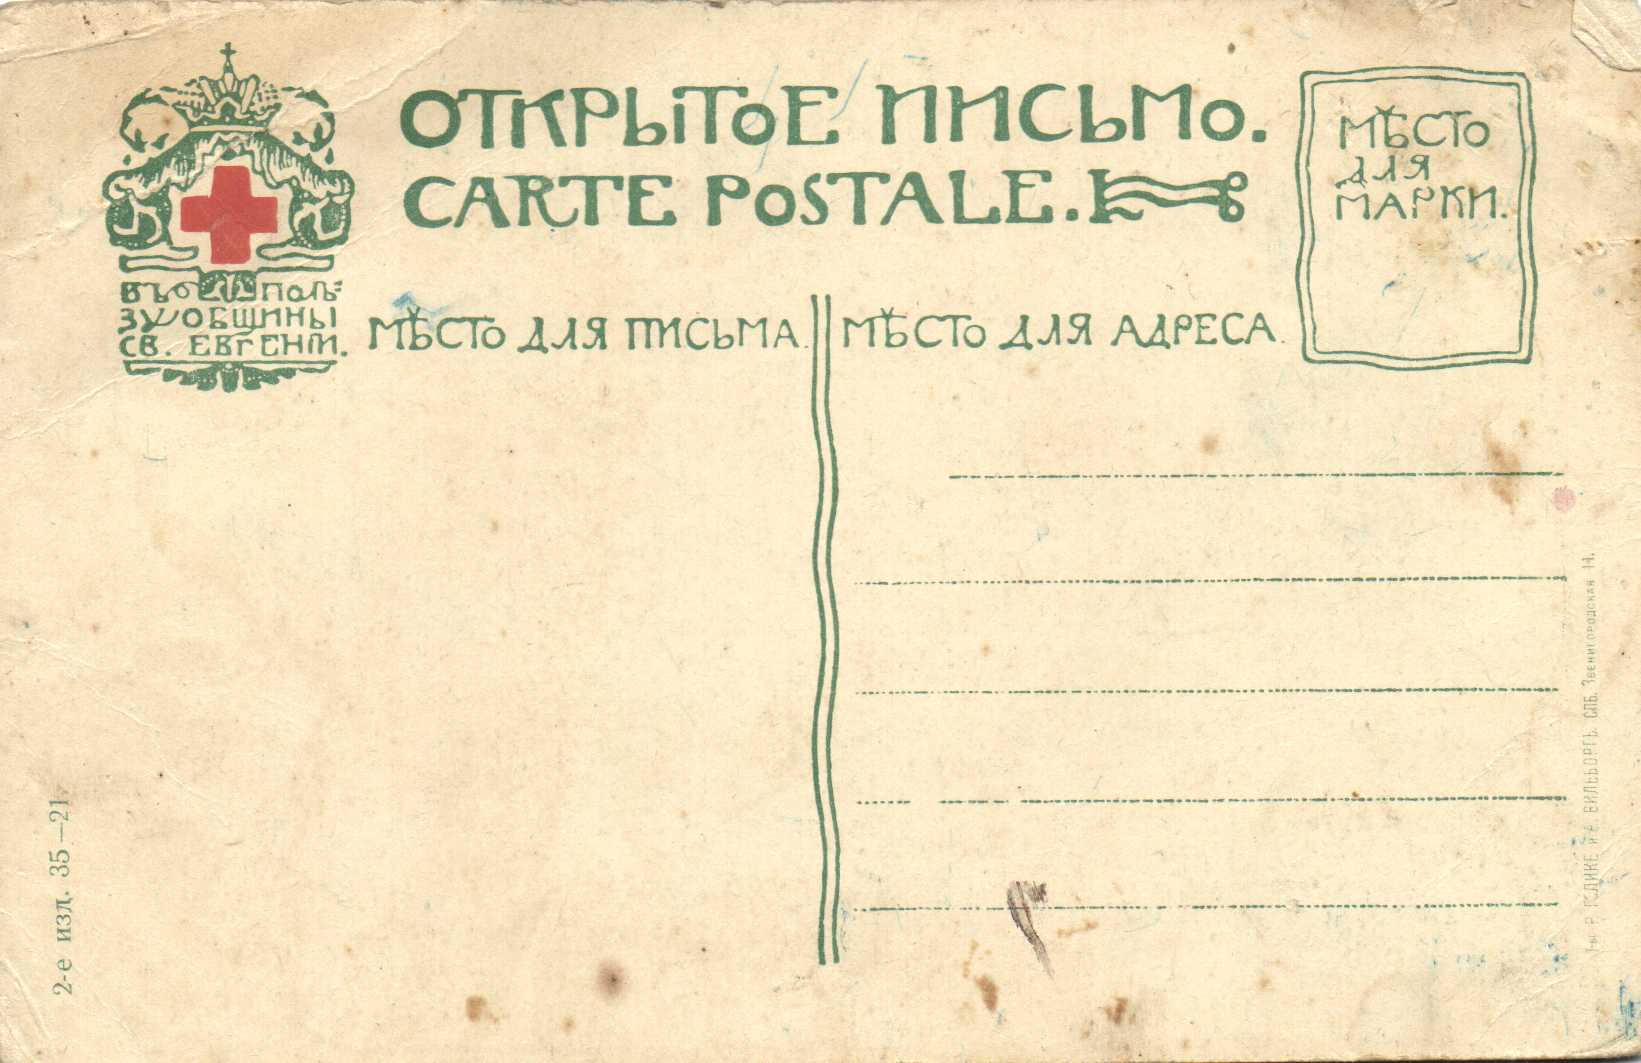 ОТКРЫТОЕ ПИСЬМО.
CARTE POSTALE.
МѢСТО
ДЛЯ
МАРКИ.
ВЪ ПОЛЬ=
ЗУ ОБЩИНЫ
СВ. ЕВГЕНІИ.
МѢСТО ДЛЯ ПИСЬМА.
МѢСТО ДЛЯ АДРЕСА.
2-е изд. 35—21
Т-во Р. ГОЛИКЕ и А. ВИЛЬБОРГЪ. СПБ. Звенигородская 11.